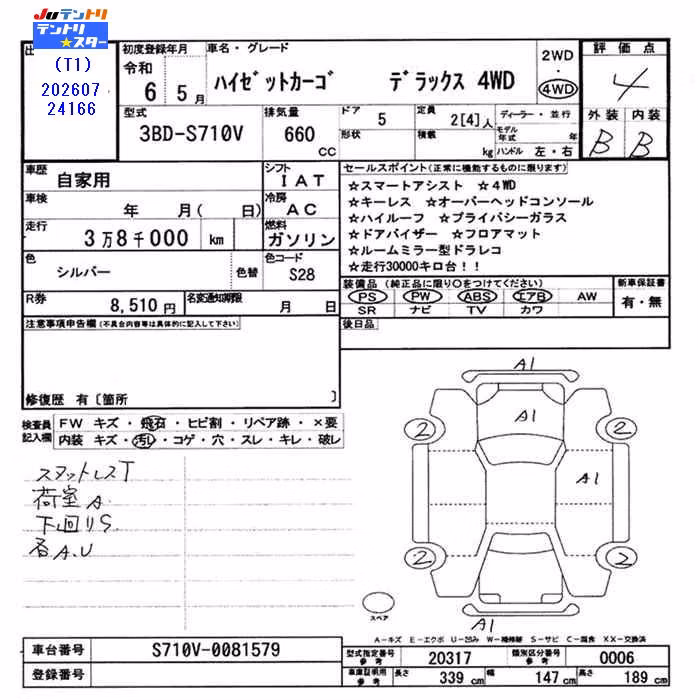 Juテントリ
テントリ
★スター
(T1)
202607
24166
初度登録年月
令和
6 5月
車名・グレード
ハイゼットカーゴ デラックス 4WD
2WD
・
4WD
評価点
4
外装 内装
B B
型式
3BD-S710V
排気量
660
CC
ドア
5
形状
定員
2[4]人
積載
kg
ディーラー・並行
モデル年式 年
ハンドル 左・右
車歴
自家用
シフト
IAT
車検
年 月( 日)
冷房
AC
走行
3万8千000 km
燃料
ガソリン
色
シルバー
色替
色コード
S28
R券
8,510円
名変通知期限
月 日
セールスポイント(正常に機能するものに限ります)
☆スマートアシスト ☆4WD
☆キーレス ☆オーバーヘッドコンソール
☆ハイルーフ ☆プライバシーガラス
☆ドアバイザー ☆フロアマット
☆ルームミラー型ドラレコ
☆走行30000キロ台!!
装備品(純正品に限り○をつけてください)
PS PW ABS エアB AW
SR ナビ TV カワ
新車保証書
有・無
後日品
注意事項申告欄(不具合内容等は具体的に記入して下さい)
修復歴 有〔箇所 〕
検査員
記入欄
FW キズ・飛石・ヒビ割・リペア跡・×要
内装 キズ・汚レ・コゲ・穴・スレ・キレ・破レ
スタットレスT
荷室A
下回りS
各A.U
A1
A1
2
2
A1
2
2
A1
スペア
A-キズ E-エクボ U-凹み W-補修跡 S-サビ C-腐食 XX-交換済
車台番号
S710V-0081579
登録番号
型式指定番号
参考
20317
類別区分番号
参考
0006
車庫証明用
参考
長さ
339 cm
幅
147 cm
高さ
189 cm